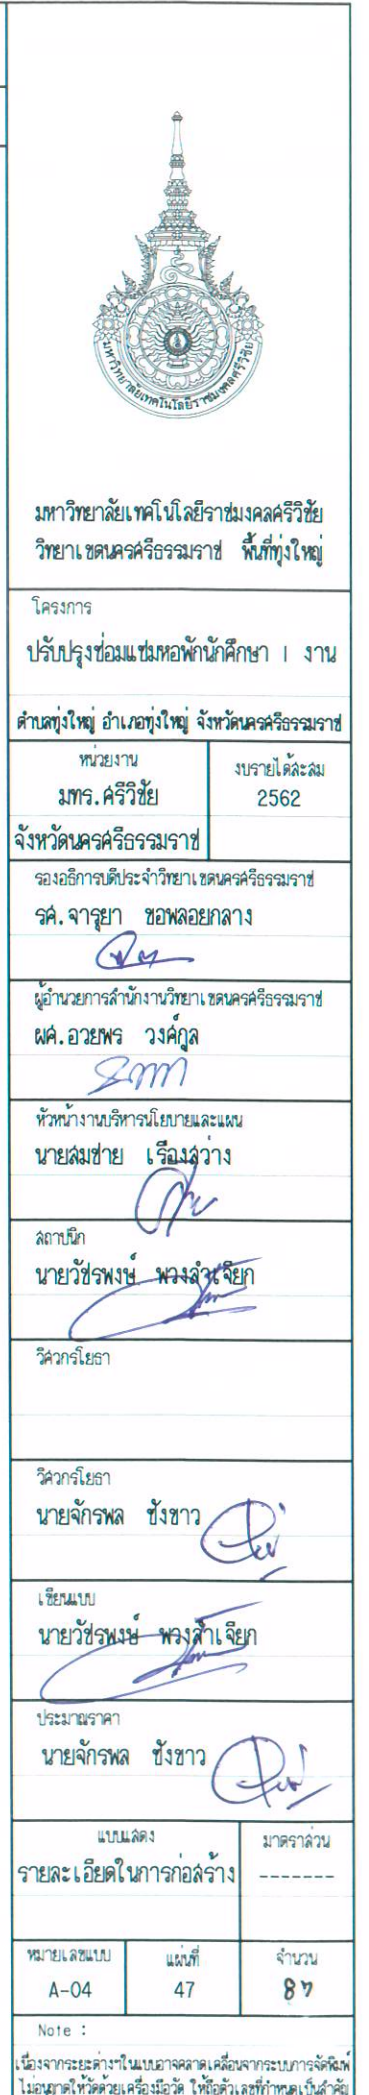 มหาวิทยาลัยเทคโนโลยีราชมงคลศรีวิชัย
มหาวิทยาลัยเทคโนโลยีราชมงคลศรีวิชัย
วิทยาเขตนครศรีธรรมราช พื้นที่ทุ่งใหญ่
โครงการ
ปรับปรุงซ่อมแซมหอพักนักศึกษา 1 งาน
ตำบลทุ่งใหญ่ อำเภอทุ่งใหญ่ จังหวัดนครศรีธรรมราช
หน่วยงาน
มทร.ศรีวิชัย
จังหวัดนครศรีธรรมราช
งบรายได้สะสม
2562
รองอธิการบดีประจำวิทยาเขตนครศรีธรรมราช
รศ.จารุยา ขอพลอยกลาง
ผู้อำนวยการสำนักงานวิทยาเขตนครศรีธรรมราช
ผศ.อวยพร วงศ์กูล
หัวหน้างานบริหารนโยบายและแผน
นายสมชาย เรืองสว่าง
สถาปนิก
นายวัชรพงษ์ พวงลำเจียก
วิศวกรโยธา
วิศวกรโยธา
นายจักรพล ชังขาว
เขียนแบบ
นายวัชรพงษ์ พวงลำเจียก
ประมาณราคา
นายจักรพล ชังขาว
แบบแสดง
รายละเอียดในการก่อสร้าง
มาตราส่วน
-------
หมายเลขแบบ แผ่นที่ จำนวน
A-04 47 87
Note :
เนื่องจากระยะต่างๆในแบบอาจคลาดเคลื่อนจากระบบการจัดพิมพ์
ไม่อนุญาตให้วัดด้วยเครื่องมือวัด ให้ถือตัวเลขที่กำหนดเป็นสำคัญ